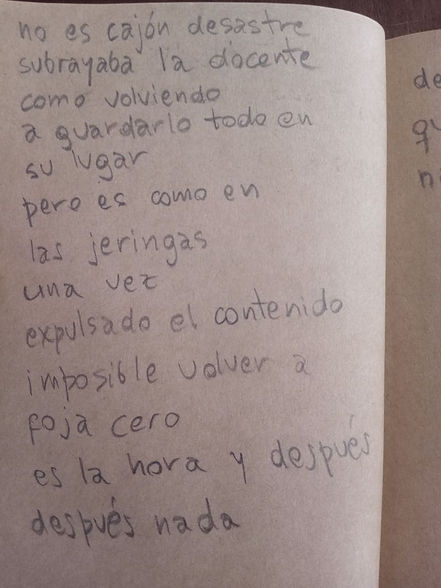 no es cajón desastre
subrayaba la docente
como volviendo
a guardarlo todo en
su lugar
pero es como en
las jeringas
una vez
expulsado el contenido
imposible volver a
foja cero
es la hora y después
después nada
de
q
n